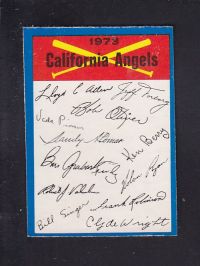 1973
California Angels
Lloyd C Allen Jeff Torborg
Bob Oliver
Vada Pinson
Sandy Alomar
Ken Berry
Rudy
Bill Singer
Frank Robinson
Clyde Wright